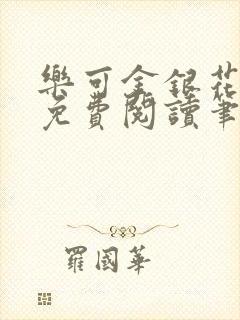 樂可金銀花
免費閱讀筆
羅國華